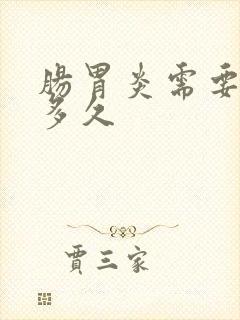 腸胃炎需要
多久
賈三家